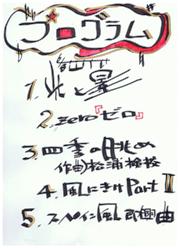 プログラム
1. 光と影
2. Zero『ゼロ』
3. 四季の眺め
作曲 松浦検校
4. 風にきけ Part II
5. スペイン風